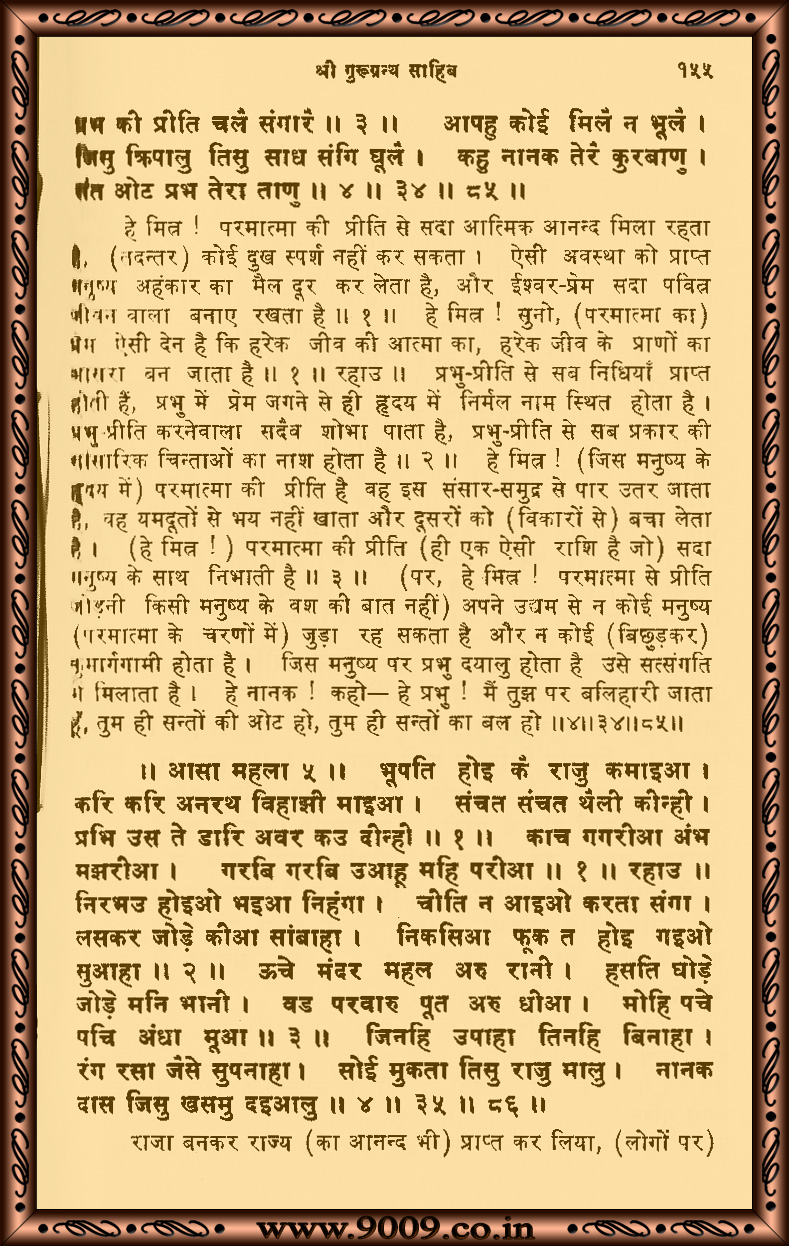 श्री गुरूग्रन्थ साहिब १५५
प्रभ की प्रीति चलै संगारै ॥ ३ ॥ आपहु कोई मिलै न भूलै ।
जिसु क्रिपालु तिसु साध संगि घूलै । कहु नानक तेरै कुरबाणु ।
संत ओट प्रभ तेरा ताणु ॥ ४ ॥ ३४ ॥ ८५ ॥
हे मित्र ! परमात्मा की प्रीति से सदा आत्मिक आनन्द मिला रहता
है, (तदन्तर) कोई दुख स्पर्श नहीं कर सकता । ऐसी अवस्था को प्राप्त
मनुष्य अहंकार का मैल दूर कर लेता है, और ईश्वर-प्रेम सदा पवित्र
जीवन वाला बनाए रखता है ॥ १ ॥ हे मित्र ! सुनो, (परमात्मा का)
प्रेम ऐसी देन है कि हरेक जीव की आत्मा का, हरेक जीव के प्राणों का
आसरा बन जाता है ॥ १ ॥ रहाउ ॥ प्रभु-प्रीति से सब निधियाँ प्राप्त
होती हैं, प्रभु में प्रेम जगने से ही हृदय में निर्मल नाम स्थित होता है ।
प्रभु-प्रीति करनेवाला सदैव शोभा पाता है, प्रभु-प्रीति से सब प्रकार की
सांसारिक चिन्ताओं का नाश होता है ॥ २ ॥ हे मित्र ! (जिस मनुष्य के
हृदय में) परमात्मा की प्रीति है वह इस संसार-समुद्र से पार उतर जाता
है, वह यमदूतों से भय नहीं खाता और दूसरों को (विकारों से) बचा लेता
है । (हे मित्र !) परमात्मा की प्रीति (ही एक ऐसी राशि है जो) सदा
मनुष्य के साथ निभाती है ॥ ३ ॥ (पर, हे मित्र ! परमात्मा से प्रीति
जोड़नी किसी मनुष्य के वश की बात नहीं) अपने उद्यम से न कोई मनुष्य
(परमात्मा के चरणों में) जुड़ा रह सकता है और न कोई (बिछुड़कर)
कुमार्गगामी होता है । जिस मनुष्य पर प्रभु दयालु होता है उसे सत्संगति
में मिलाता है । हे नानक ! कहो— हे प्रभु ! मैं तुझ पर बलिहारी जाता
हूँ, तुम ही सन्तों की ओट हो, तुम ही सन्तों का बल हो ॥४॥३४॥८५॥
॥ आसा महला ५ ॥ भूपति होइ कै राजु कमाइआ ।
करि करि अनरथ विहाझी माइआ । संचत संचत थैली कीन्ही ।
प्रभि उस ते डारि अवर कउ दीन्ही ॥ १ ॥ काच गगरीआ अंभ
मझरीआ । गरबि गरबि उआहू महि परीआ ॥ १ ॥ रहाउ ॥
निरभउ होइओ भइआ निहंगा । चीति न आइओ करता संगा ।
लसकर जोड़े कीआ सांबाहा । निकसिआ फूक त होइ गइओ
सुआहा ॥ २ ॥ ऊचे मंदर महल अरु रानी । हसति घोड़े
जोड़े मनि भानी । वड परवारु पूत अरु धीआ । मोहि पचे
पचि अंधा मूआ ॥ ३ ॥ जिनहि उपाहा तिनहि बिनाहा ।
रंग रसा जैसे सुपनाहा । सोई मुकता तिसु राजु मालु । नानक
दास जिसु खसमु दइआलु ॥ ४ ॥ ३५ ॥ ८६ ॥
राजा बनकर राज्य (का आनन्द भी) प्राप्त कर लिया, (लोगों पर)
www.9009.co.in